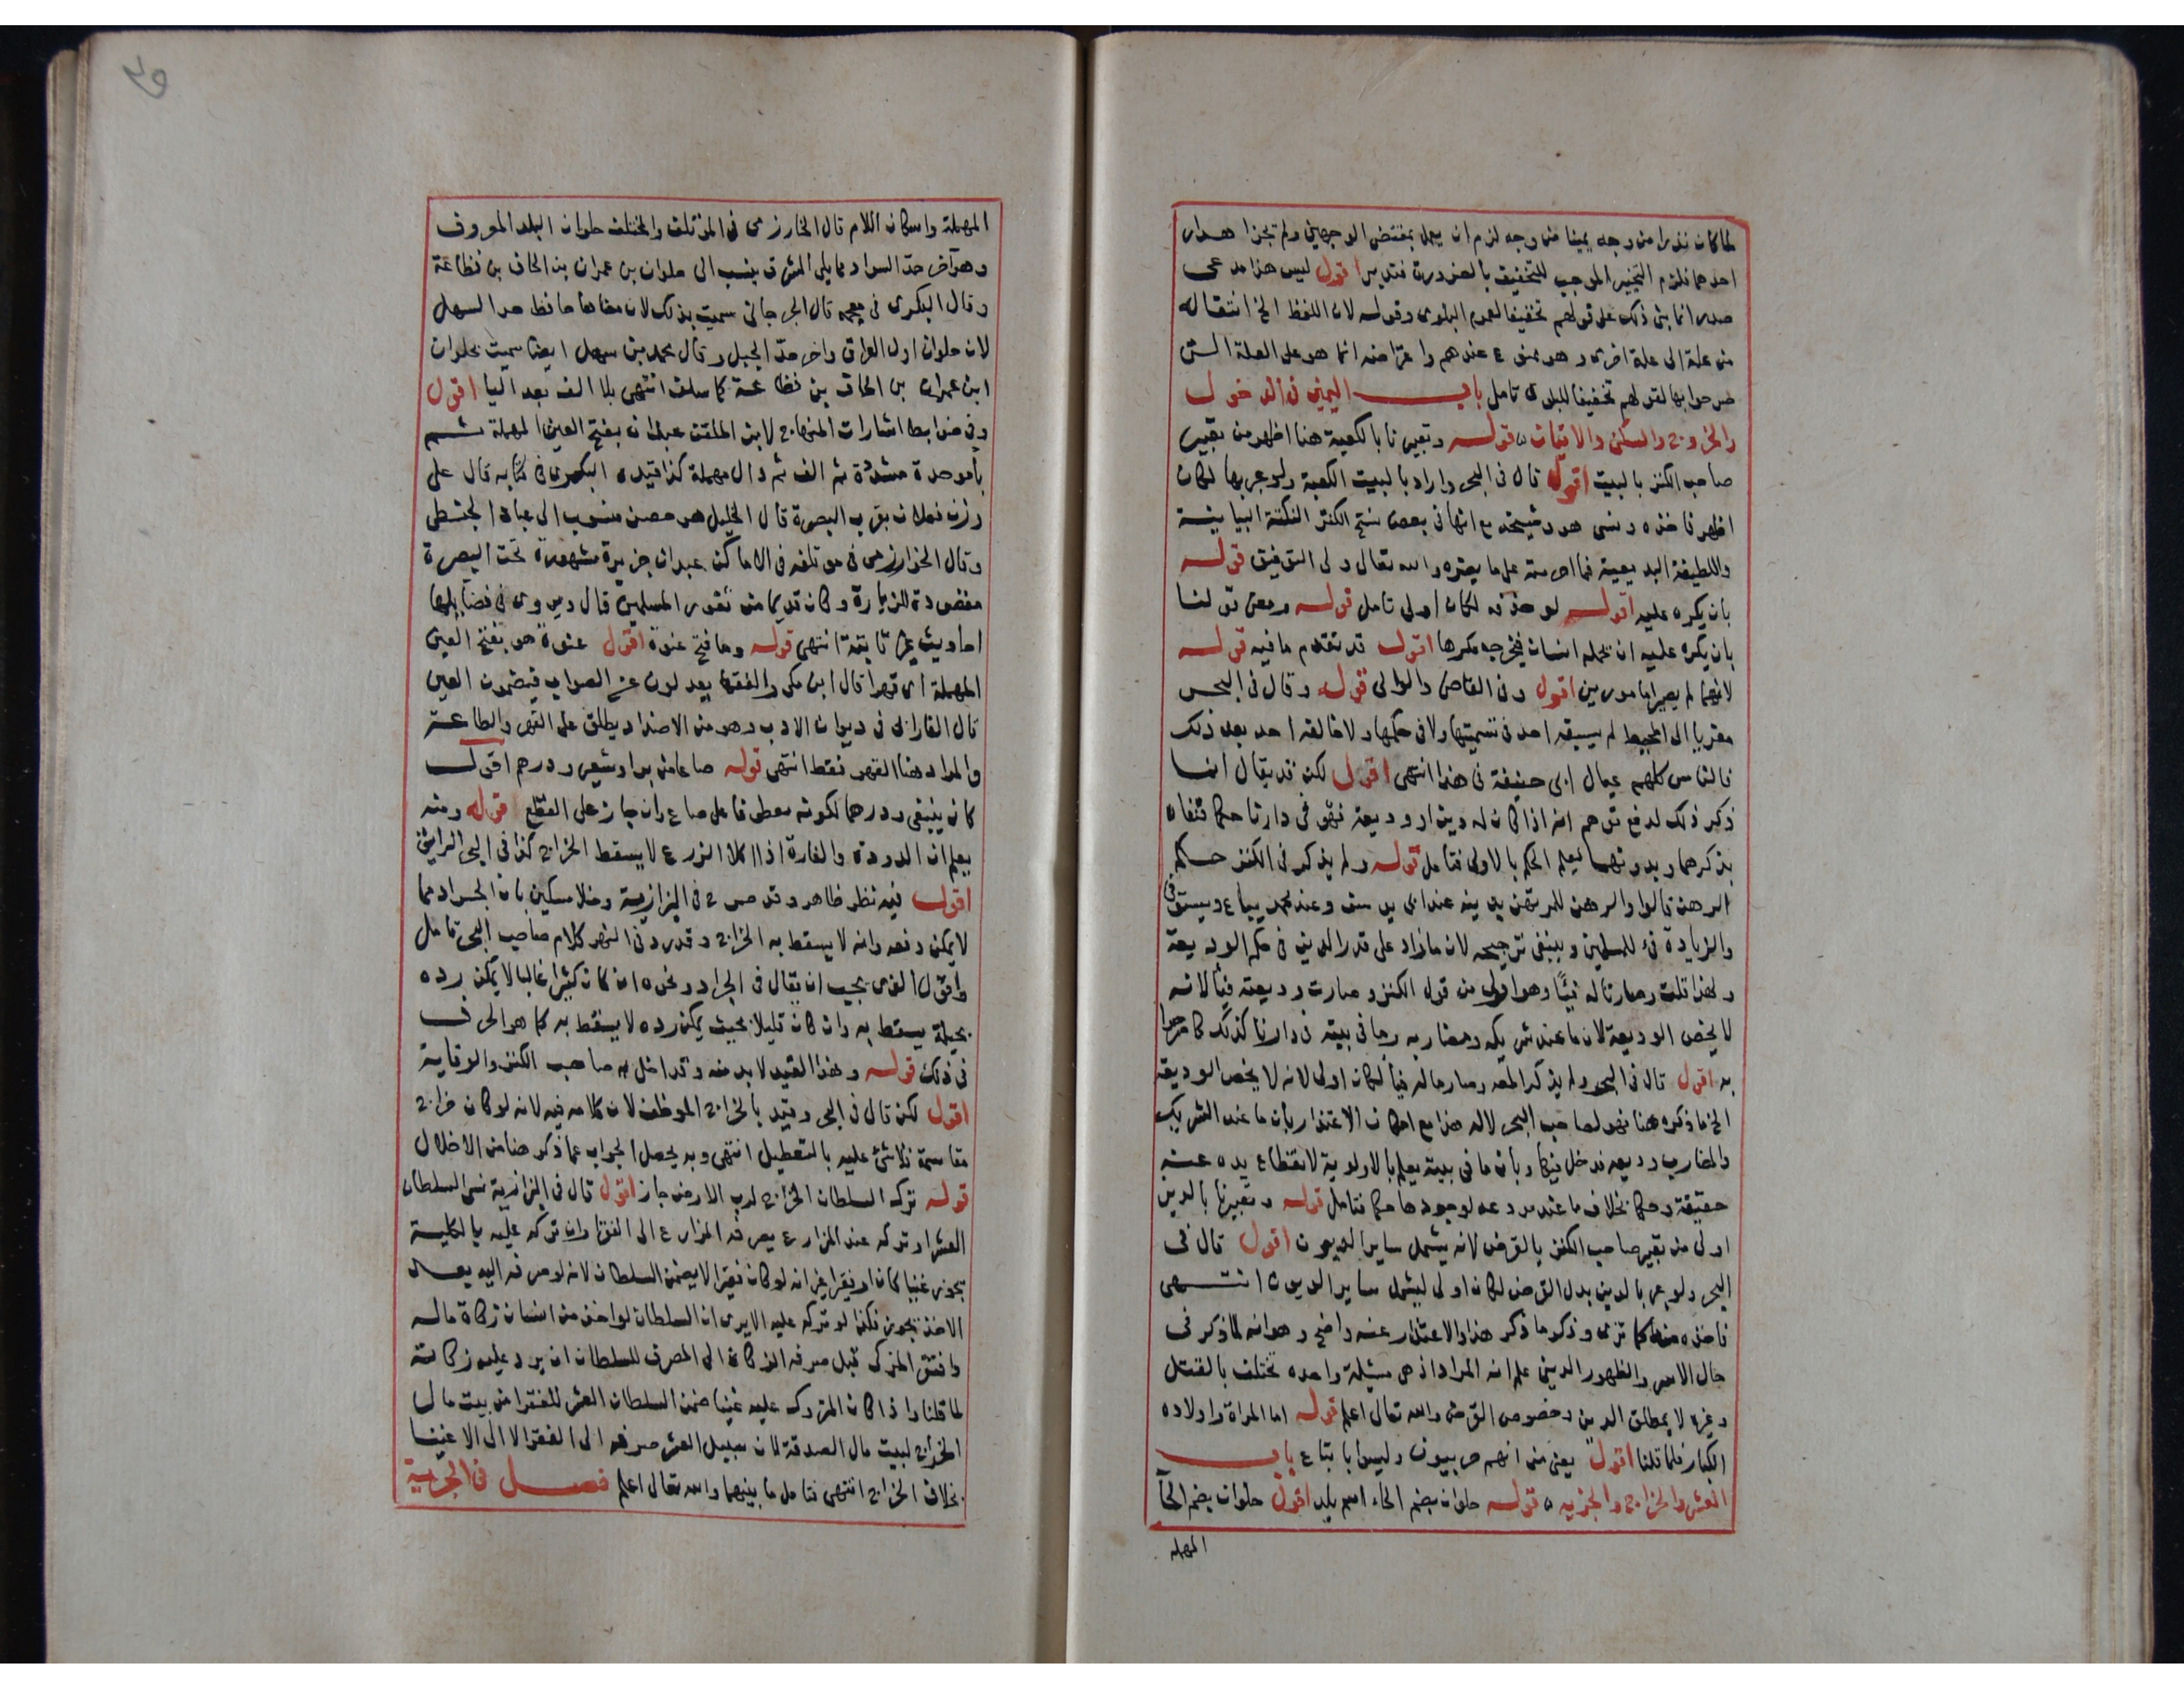 لما كان نذرا من وجه يمينا من وجه لزم ان يعمل بمقتضى الوجهين ولم يجز اهدار
احدهما فلزم التخيير الموجب للتخفيف بالضرورة فتدبر اقول ليس هذا مدعى
صدر انما بنى ذلك على قولهم تخفيفا لعموم البلوى وقوله لان اللفظ الخ انتقاله
من علة الى علة اخرى وهو ممنوع عندهم واعتراضه انما هو على العلة التى
صرحوا بها لقولهم تخفيفا للبلوى تامل باب اليمين فى الدخول
والخروج والسكنى والاتيان قوله وتعبيرنا بالكعبة هنا اظهر من تعبير
صاحب الكنز بالبيت اقول قال فى البحر واراد بالبيت الكعبة ولو عبر بها لكان
اظهر فاخذه ونسى هو وشيخه مع انها فى بعض نسخ الكنز النكتة البيانية
واللطيفة البديعية والله تعالى ولى التوفيق قوله
بان يكره عليه اقول لو حذفه لكان اولى تامل قوله ومعنى قولنا
بان يكره عليه ان يحمله انسان فيخرجه مكرها اقول قد تقدم ما فيه قوله
لانهما لم يصيرا مامورين اقول وفى القاضى والوالى قوله وقال فى البحر
معزيا الى المحيط لم يسبقه احد فى تسميتها ولا فى حكمها ولا خالفه احد بعد ذلك
فالناس كلهم عيال ابى حنيفة فى هذا انتهى اقول لكن قد يقال انما
ذكر ذلك لدفع توهم انه اذا كان له دين او وديعة فهو فى دارنا حكما
بذكرهما وبدونهما ليعلم الحكم بالاولى فتامل قوله ولم يذكر فى الكنز حكم
الرهن قالوا والرهن للمرتهن بدينه عند ابى يوسف وعند محمد يباع ويستوفى
والزيادة فىء للمسلمين وينبغى ترجيحه لان ما زاد على قدر الدين فى حكم الوديعة
ولهذا قلت وصار ماله فيئا وهو اولى من قول الكنز وصارت وديعته فيئا لانه
لا يخص الوديعة لان ما عند شريكه ومضاربه وما فى بيته فى دارنا كذلك كما صرحوا
به اقول قال فى البحر ولم يذكر المص وصار ماله فيئا لكان اولى لانه لا يخص الوديعة
الخ ما ذكره هنا فهو لصاحب البحر لا له هذا مع امكان الاعتذار بان ما عند الشريك
والمضارب وديعة فدخل فيها وبان ما فى بيته يعلم بالاولوية لانقطاع يده عنه
حقيقة وحكما بخلاف ما عند مودعه لوجودها حكما فتامل قوله وتعبيرنا بالدين
اولى من تعبير صاحب الكنز بالقرض لانه يشمل ساير الديون اقول قال فى
البحر ولو عبر بالدين بدل القرض لكان اولى ليشمل ساير الديون انتهى
فاخذه منه كما ترى وذكر ما ذكر هذا والاعتذار عنه واضح وهو انه لما ذكر فى
حال الاسر والظهور الدين علم انه المراد اذ هى مسئلة واحدة تختلف بالقتل
وغيره لا بمطلق الدين وخصوص القرض والله تعالى اعلم قوله اما المراة واولاده
الكبار فلما قلنا اقول يعنى من انهم حربيون وليسوا باتباع باب
العشر والخراج والجزيه قوله حلوان بضم الحاء اسم بلد اقول حلوان بضم الحا
المهملة
المهملة واسكان اللام قال الخارزمى فى المؤتلف والمختلف حلوان البلد المعروف
وهو اخر حد السواد مما يلى المشرق ينسب الى حلوان بن عمران بن الحاف بن قضاعة
وقال البكرى فى معجمه قال الجرجانى سميت بذلك لان معناها حافظ حد السهل
لان حلوان اول العراق واخر حد الجبل وقال محمد بن سهل ايضا سميت بحلوان
ابن عمران بن الحاف بن قضاعة كما سلف انتهى بلا الف بعد اليا اقول
وفى ضوابط اشارات المنهاج لابن الملقن عبادان بفتح العين المهملة ثم
باموحدة مشددة ثم الف ثم دال مهملة كذا قيده البكرى فى كتابه قال على
وزن فعلان بقرب البصرة قال الخليل هو حصن منسوب الى عباد الحبطى
وقال الخوارزمى فى مؤتلفه فى الاماكن عبدان جزيرة مشهورة تحت البصرة
مقصودة للزيارة وكان قديما من ثغور المسلمين قال وروى فى فضايلها
احاديث غير ثابتة انتهى قوله وما فتح عنوة اقول عنوة هو بفتح العين
المهملة اى قهرا قال ابن مكى والفقها يعدلون عن الصواب فيضمون العين
قال الفارابى فى ديوان الادب وهو من الاضداد يطلق على القهر والطاعة
والمراد هنا القهر فقط انتهى قوله صاعا من بر او شعير ودرهم اقول
كان ينبغى ودرهما لكونه معطوفا على صاع وان جاز على القطع قوله ومنه
يعلم ان الدودة والفارة اذا اكلا الزرع لا يسقط الخراج كذا فى البحر الرايق
اقول فيه نظر ظاهر وقد صرح فى البزازية ومنلا مسكين بان الجراد مما
لا يمكن دفعه وانه لا يسقط به الخراج وقد رد فى النهر كلام صاحب البحر تامل
واقول الذى يجب ان يقال فى الجراد ونحوه ان كان كثيرا غالبا لا يمكن رده
بحيلة يسقط به وان كان قليلا بحيث يمكن رده لا يسقط به كما هو الحرف
فى ذلك قوله وهذا القيد لا بد منه وقد اخل به صاحب الكنز والوقاية
اقول لكن قال فى البحر وقيد بالخراج الموظف لان كلامه فيه لانه لو كان خراج
مقاسمة فلا شئ عليه بالتعطيل انتهى وبه يحصل الجواب عما ذكر هنا من الاخلال
قوله ترك السلطان الخراج لرب الارض جاز اقول قال فى البزازية نسى السلطان
العشر او تركه عند المزارع يصرفه المزارع الى الفقرا وان تركه عليه بالكلية
يجوز غنيا كان او فقيرا غير انه لو كان فقيرا لا يضمن السلطان لانه لو صرفه اليه بعد
الاخذ يجوز فكذا لو تركه عليه الا يرى ان السلطان لو اخذ من انسان زكاة ماله
وافتقر المزكى قبل صرفه الزكاة الى المصرف للسلطان ان يرد عليه زكاته
لما قلنا واذا كان المتروك عليه غنيا ضمن السلطان العشر للفقرا من بيت مال
الخراج لبيت مال الصدقة لان سبيل العشر صرفه الى الفقرا لا الى الاغنيا
بخلاف الخراج انتهى فتامل ما بينهما والله تعالى اعلم فصل فى الجزية